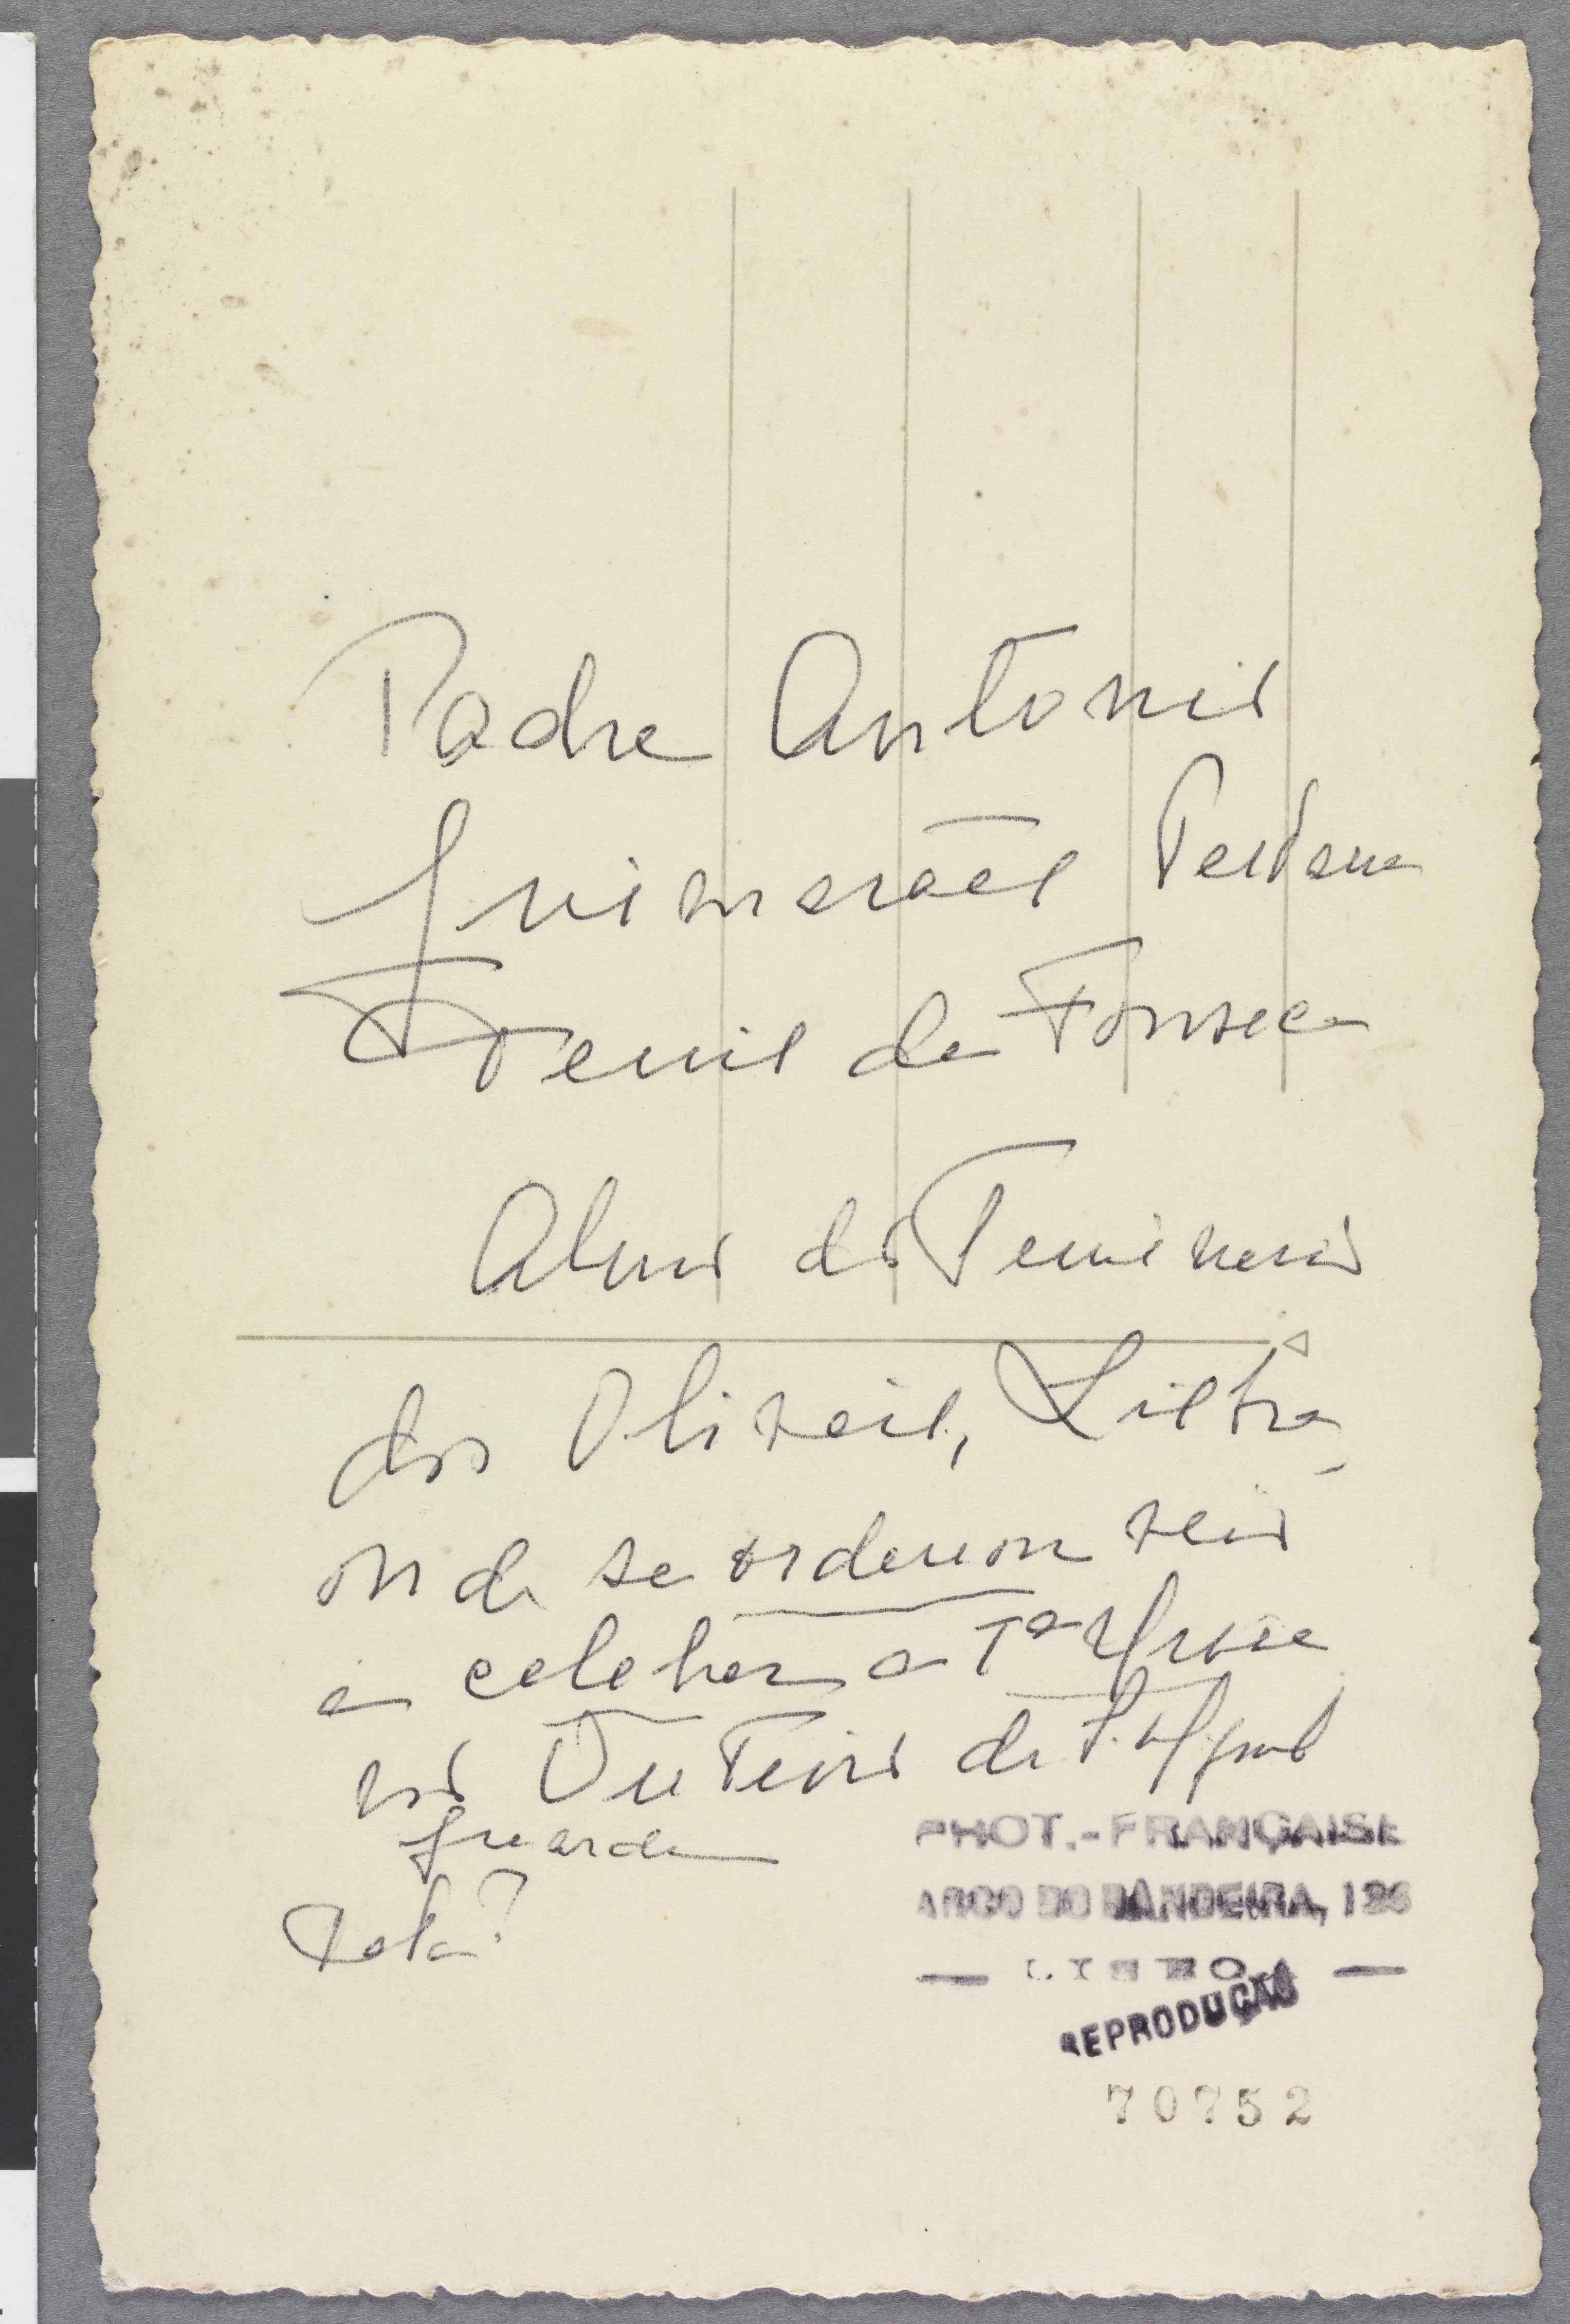 Padre Antonio
Guimarães Pestana
da Fonseca
Aluno do Seminario
dos Olivais, Lisboa
onde se ordenou veio
a celebrar a 1ª Missa
no Outeiro de S. Miguel
Guarda
PHOT.-FRANÇAISE
ARCO DO BANDEIRA, 126
— LISBOA —
REPRODUÇÃO
70752